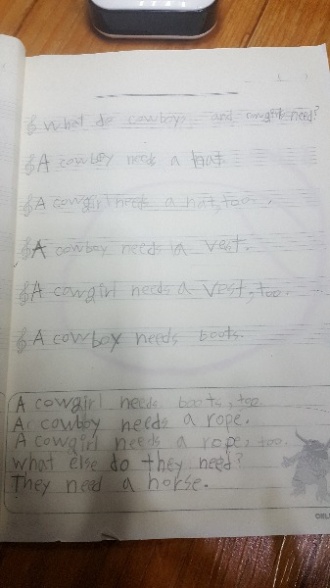 What do cowboys and cowgirls need?
A cowboy needs a hat.
A cowgirl needs a hat, too.
A cowboy needs a vest.
A cowgirl needs a vest, too.
A cowboy needs boots.
A cowgirl needs boots, too.
A cowboy needs a rope.
A cowgirl needs a rope, too.
What else do they need?
They need a horse.